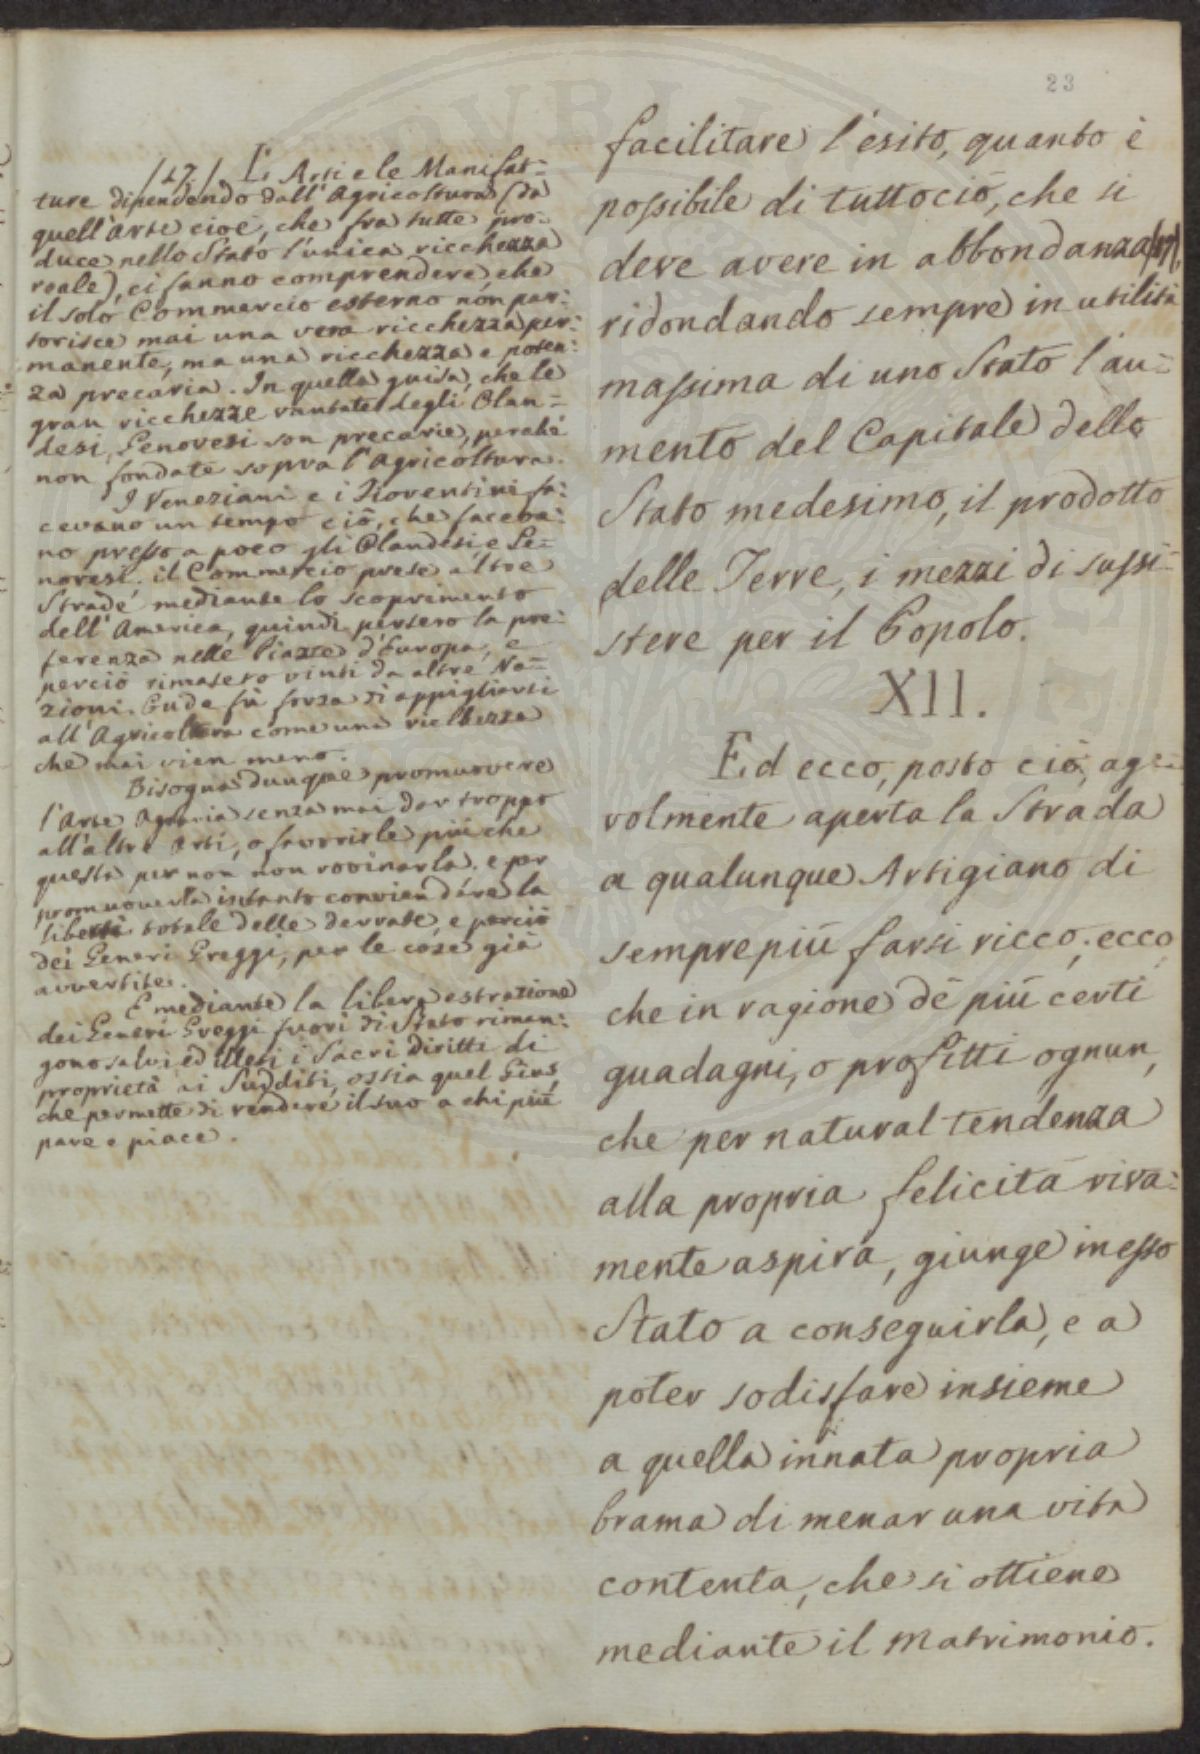 23
facilitare l'esito, quanto è
possibile di tuttociò, che si
deve avere in abbondanza (17),
ridondando sempre in utilità
massima di uno Stato l'au=
mento del Capitale dello
Stato medesimo, il prodotto
delle Terre, i mezzi di sussi=
stere per il Popolo.
XII.
Ed ecco, posto ciò, age=
volmente aperta la Strada
a qualunque Artigiano di
semprepiù farsi ricco; ecco
che in ragione de più certi
guadagni, o profitti ognun,
che per natural tendenza
alla propria felicità viva=
mente aspira, giunge in esso
Stato a conseguirla, e a
poter sodisfare insieme
a quella innata propria
brama di menar una vita
contenta, che si ottiene
mediante il Matrimonio.
(17) L'Arti e le Manifat=
ture dipendendo dall'Agricoltura (da
quell'Arte cioè, che fra tutte pro=
duce nello Stato l'unica ricchezza
reale), ci fanno comprendere, che
il solo Commercio esterno non par=
torisce mai una vera ricchezza per=
manente, ma una ricchezza e poten=
za precaria. In quella guisa, che le
gran ricchezze vantate degli Olan=
desi, Genovesi son precarie, perchè
non fondate sopra l'Agricoltura.
I Veneziani e i Fiorentini fa=
cevano un tempo ciò, che faceva=
no presso a poco gli Olandesi, e Ge=
novesi. il Commercio prese altre
Strade mediante lo scoprimento
dell'America, quindi persero la pre=
ferenza nelle Piazze d'Europa, e
perciò rimasero vinti da altre Na=
zioni. Onde fù forza di appigliarsi
all'Agricoltura come una ricchezza
che mai vien meno.
Bisogna dunque promuovere
l'Arte Agraria senza mai dar troppo
all'altre Arti, o favorirle più che
questa per non non rovinarla. e per
promuoverla intanto convien dare la
libertà totale delle derrate, e perciò
dei Generi Greggi, per le cose già
avvertite.
E mediante la libera estrazione
dei Generi Greggi fuori di Stato riman=
gono salvi ed illesi i Sacri diritti di
proprietà ai Sudditi, ossia quel Gius
che permette di vendere il suo a chi più
pare e piace.